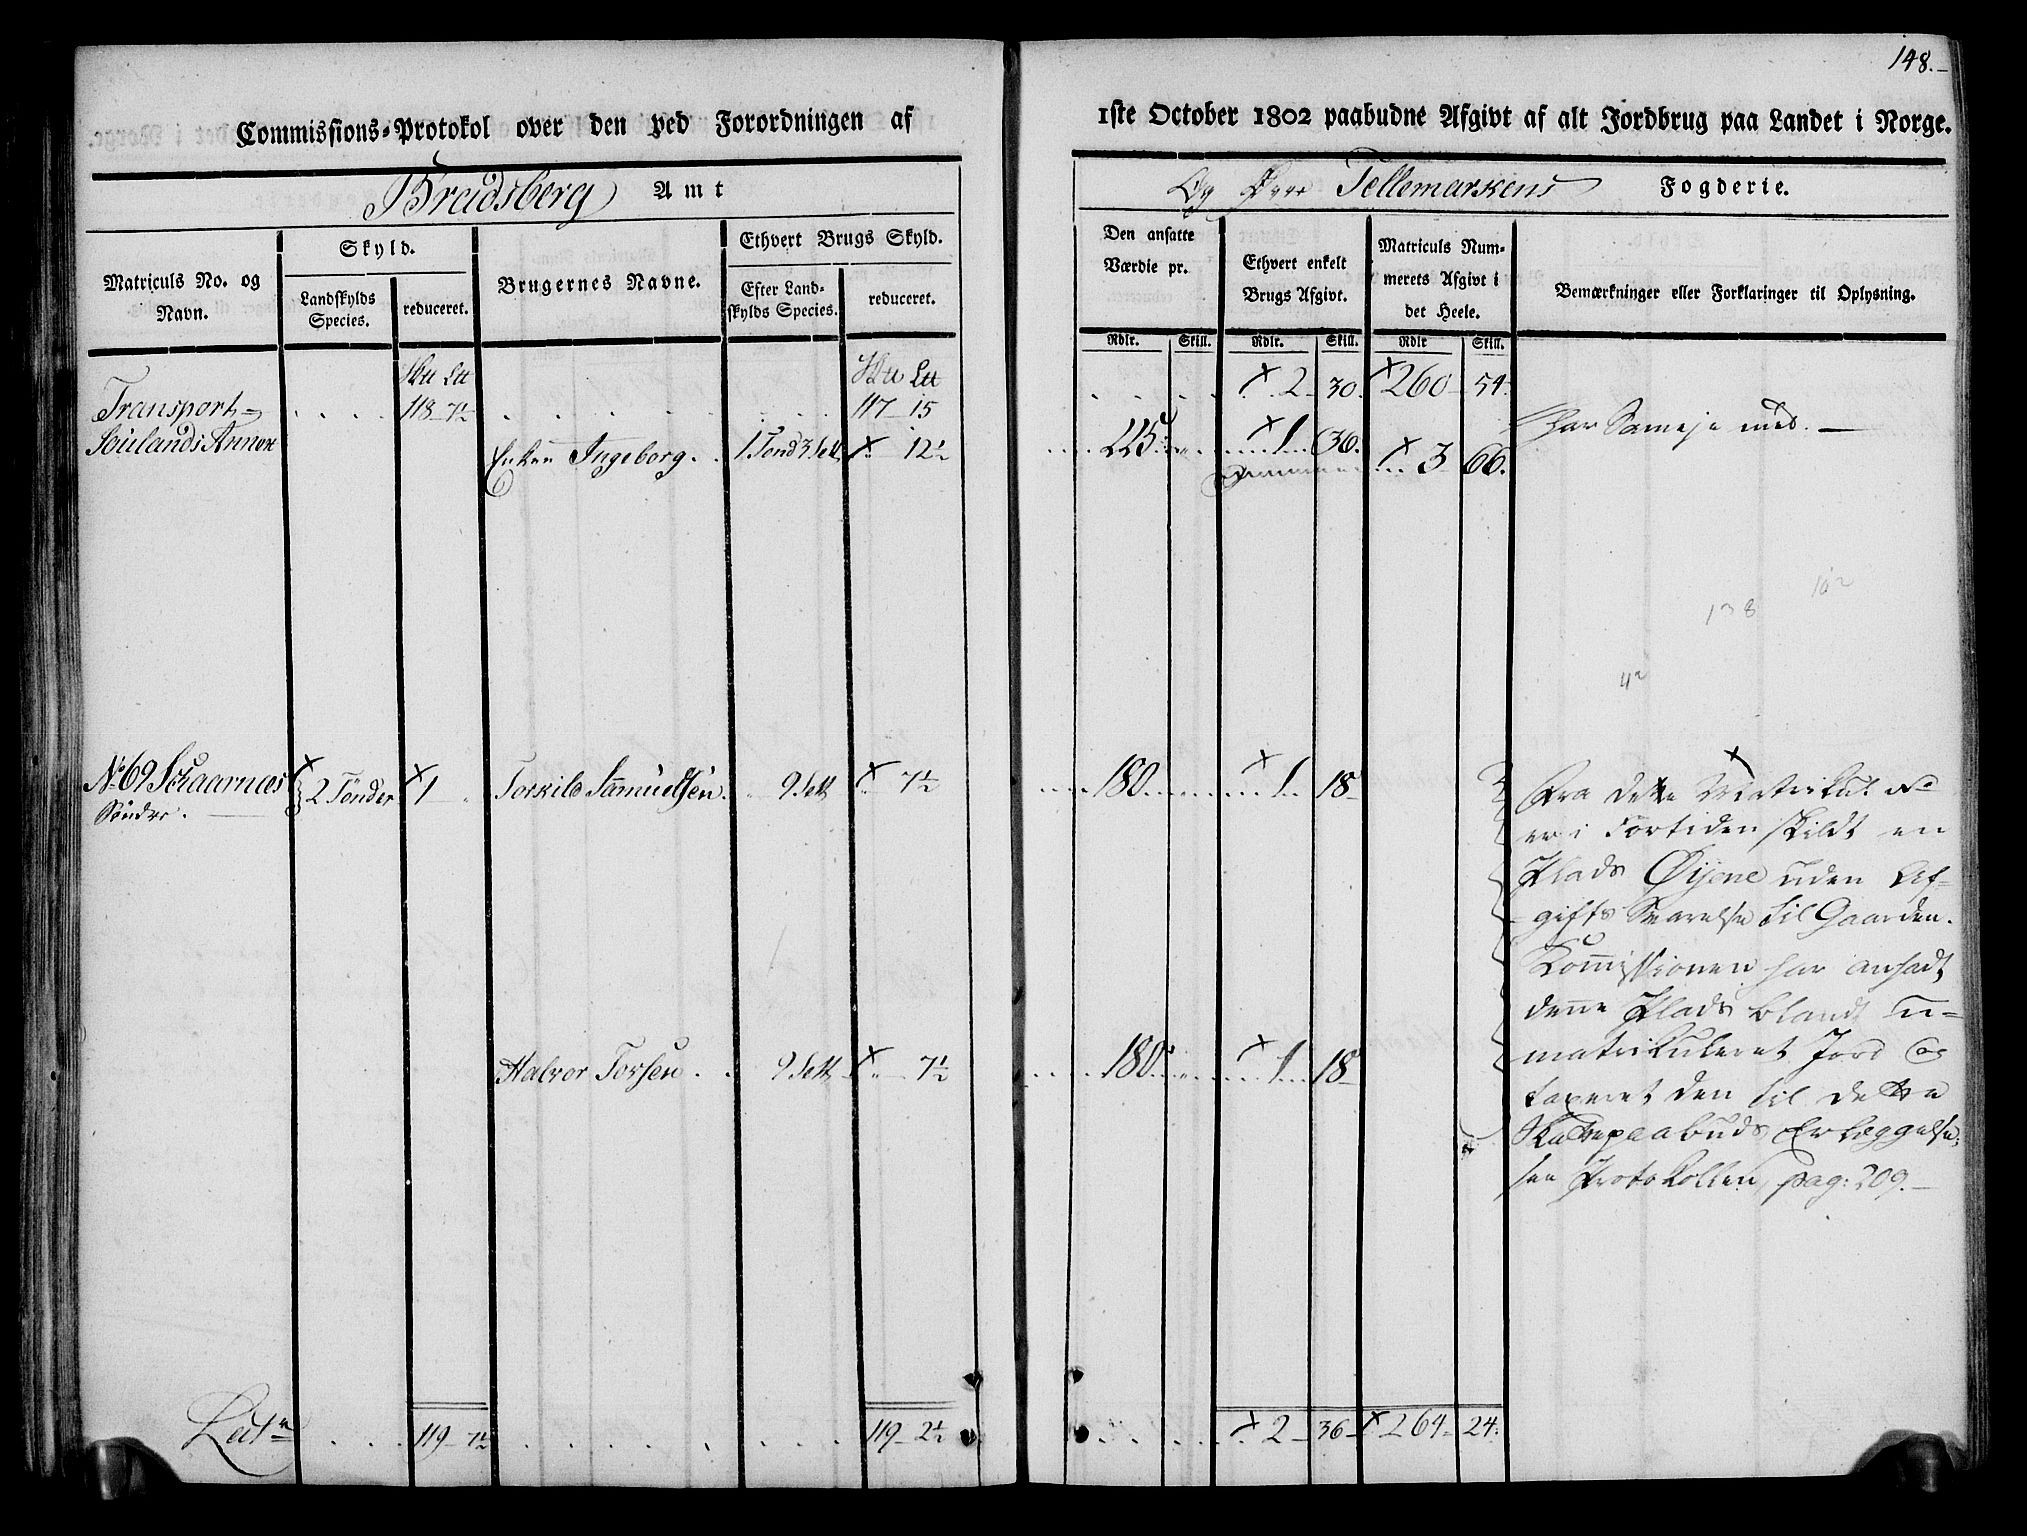 148.
Commissions-Protokol over den ved Forordningen af
1ste October 1802 paabudne Afgivt af alt Jordbrug paa Landet i Norge.
Bradsberg Amt
Og Øvre Tellemarkens Fogderie.
Matriculs No. og Navn.
Skyld.
Landskylds Species.
reduceret.
Brugernes Navne.
Ethvert Brugs Skyld.
Efter Landskylds Species.
reduceret.
Den ansatte Værdie pr.
Ethvert enkelt Brugs Afgivt.
Matriculs Nummerets Afgivt i det Heele.
Bemærkninger eller Forklaringer til Oplysning.
Rdlr. Skill. Rdlr. Skill. Rdlr Skill.
Transport 118 7½ 117 15 2 30 260 54
Annex Enken Ingeborg 1 Tønd 3 Sett 12½ 225 1 36 3 66
har Sameje med.
138
No 69 Schaarnæs 2 Tønder 1 Torkild Samuelsen 9 Sett 7½ 180 1 18
Søndre
Fra dette Matrikul No
er i Fortiden skildt en
Plads Øijene uden Af-
gifts Svarelse til Gaarden.
Kommissionen har ansadt
denne Plads blandt u-
matrikuleret Jord og
taxeret den til dette
Skattepaabuds Erlæggelse,
see Protokollen, pag: 209.
Halvor Torsen 9 Sett 7½ 180 1 18
Lat. 119 7½ 119 2½ 2 36 264 24